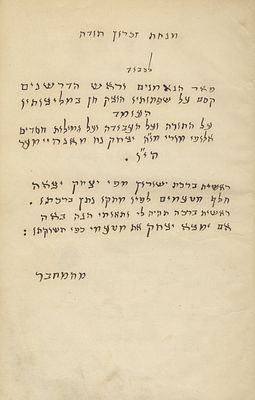 מנחת זכרון תודה
לכבוד
פאר הנאמנים וראש הדרשנים
קסם על שפתותיו הוצק חן במליצותיו
העומד
על התורה ועל העבודה ועל גמילות חסדים
אלופי מורי מו״ה יצחק נח מאנהיימער
הי״ו .
ראשית ברכת ישורון מפי יצחק יצאה
חלף מטעמים לפיו מתקו נתן ברכתו .
ראשית ברכה תהיה לי ותאותי הנה באה
אם ימצא יצחק את מטעמי כפי תשוקתו :
מהמחבר